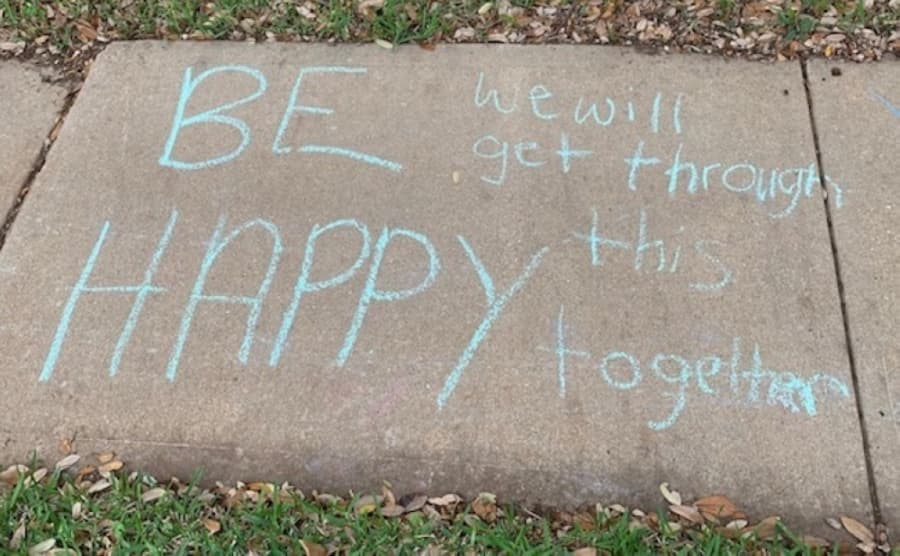 BE
HAPPY
we will
get through
this
together